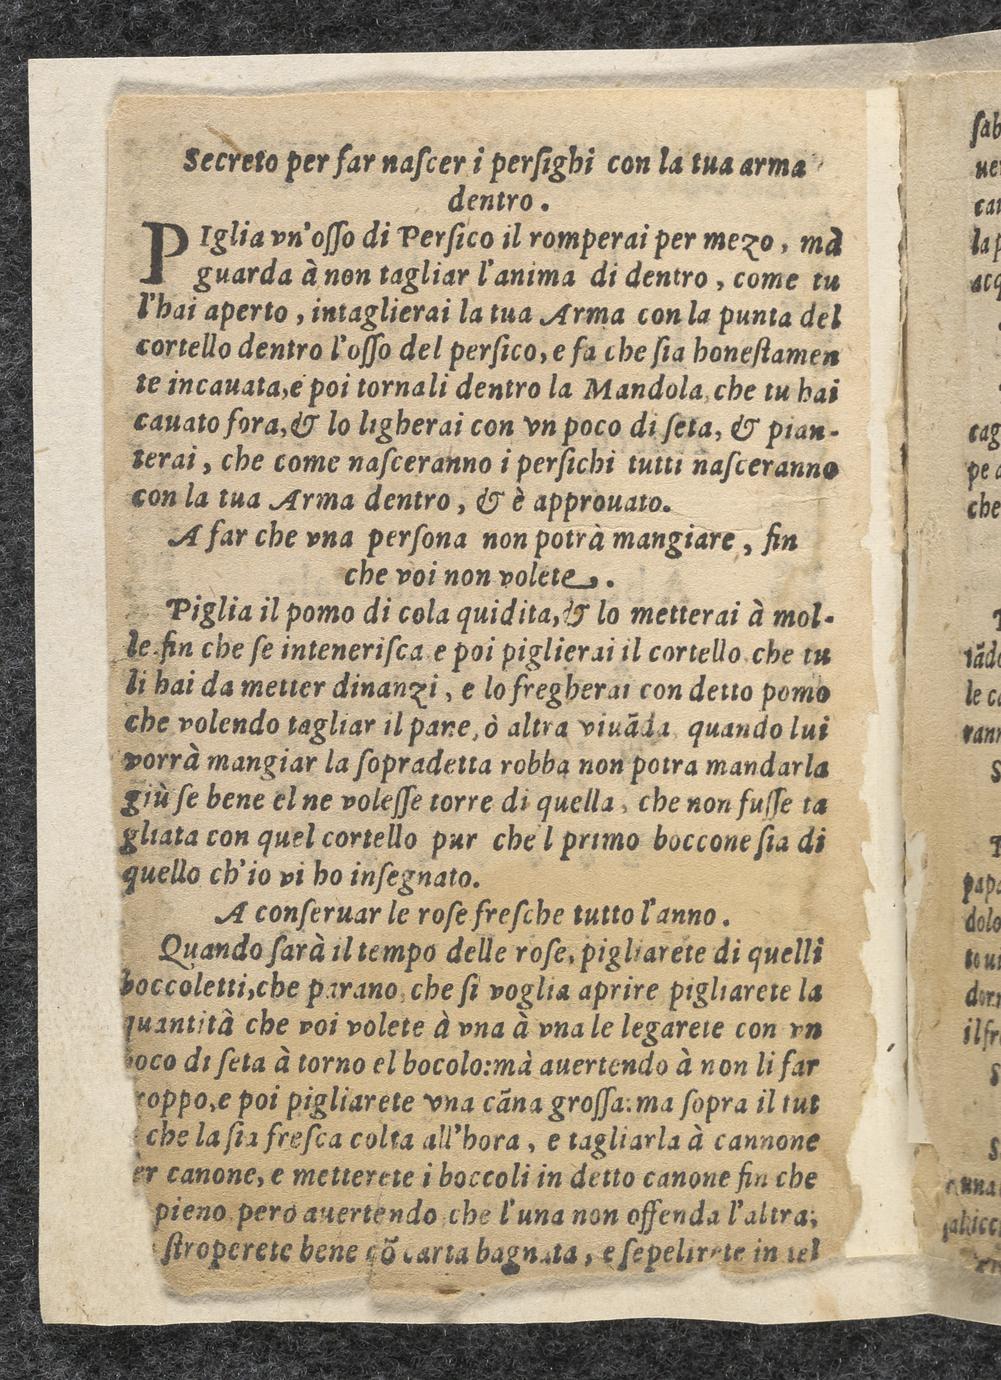 Secreto per far naſcer i perſighi con la tua arma
dentro.
PIglia vn'oſſo di Perſico il romperai per mezo, mà
guarda à non tagliar l'anima di dentro, come tu
l'hai aperto, intaglierai la tua Arma con la punta del
cortello dentro l'oſſo del perſico, e fa che ſia honeſtamen
te incauata, e poi tornali dentro la Mandola, che tu hai
cauato fora, & lo ligherai con vn poco di ſeta, & pian-
terai, che come naſceranno i perſichi tutti naſceranno
con la tua Arma dentro, & è approuato.
A far che vna perſona non potrà mangiare, fin
che voi non volete.
Piglia il pomo di cola quidita, & lo metterai à mol-
le fin che ſe inteneriſca e poi piglierai il cortello che tu
li hai da metter dinanzi, e lo fregherai con detto pomo
che volendo tagliar il pane, ò altra viuāda quando lui
vorrà mangiar la ſopradetta robba non potra mandarla
giù ſe bene el ne voleſſe torre di quella, che non fuſſe ta
gliata con quel cortello pur che l primo boccone ſia di
quello ch'io vi ho inſegnato.
A conſeruar le roſe freſche tutto l'anno.
Quando ſarà il tempo delle roſe, pigliarete di quelli
boccoletti, che parano, che ſi voglia aprire pigliarete la
quantità che voi volete à vna à vna le legarete con vn
oco di ſeta à torno el bocolo: mà auertendo à non li far
roppo, e poi pigliarete vna cāna groſſa: ma ſopra il tut
che la ſia freſca colta all'hora, e tagliarla à cannone
er canone, e metterete i boccoli in detto canone fin che
pieno però auertendo che l'una non offenda l'altra;
ſtroperete bene cō carta bagnata, e ſepelirete in tel
ſab
uer
car
la p
acq
cag
pe a
che
T
tādo
le ca
rann
S
T
papa
dolo
to un
dorn
il fre
S
S